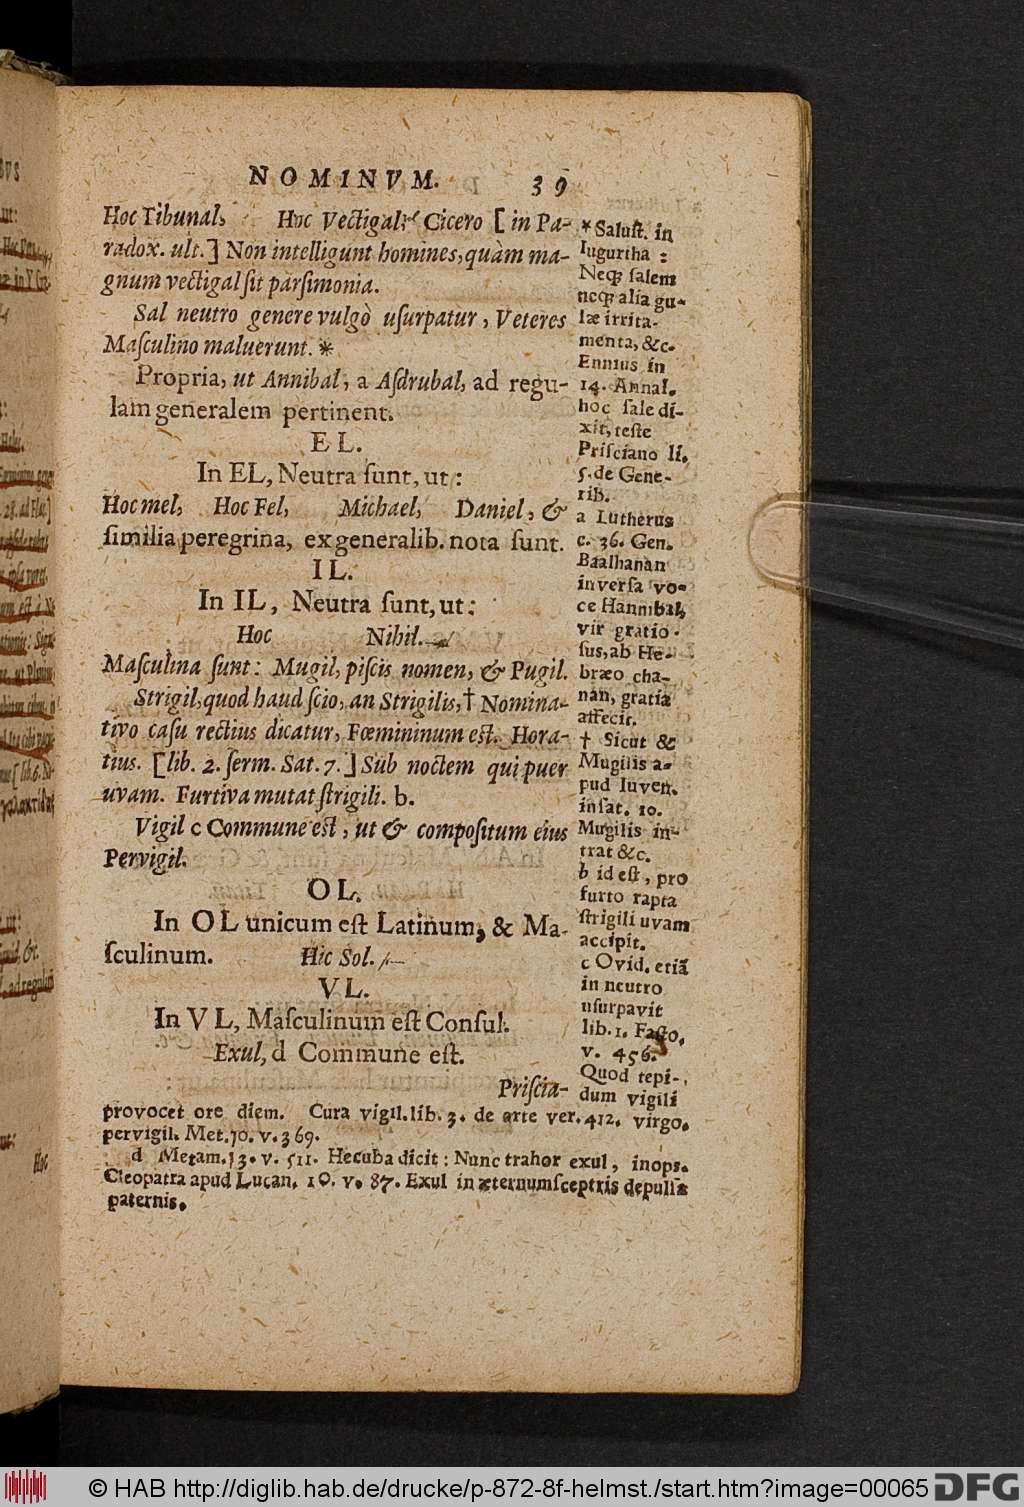 NOMINVM. 39
Hoc Tibunal, Hoc Vectigal: Cicero [in Pa-
radox. ult.] Non intelligunt homines, quàm ma-
gnum vectigal sit parsimonia.
Sal neutro genere vulgò usurpatur, Veteres
Masculino maluerunt. *
Propria, ut Annibal, a Asdrubal, ad regu-
lam generalem pertinent.
EL.
In EL, Neutra sunt, ut:
Hoc mel, Hoc Fel, Michael, Daniel, &
similia peregrina, ex generalib. nota sunt.
IL.
In IL, Neutra sunt, ut:
Hoc Nihil.
Masculina sunt: Mugil, piscis nomen, & Pugil.
Strigil, quod haud scio, an Strigilis, † Nomina-
tivo casu rectius dicatur, Fœmininum est. Hora-
tius. [lib. 2. serm. Sat. 7.] Sub noctem qui puer
uvam. Furtiva mutat strigili. b.
Vigil c Commune est, ut & compositum eius
Pervigil.
OL.
In OL unicum est Latinum, & Ma-
sculinum. Hic Sol.
VL.
In VL, Masculinum est Consul.
Exul, d Commune est.
Priscia-
* Salust. in
Iugurtha:
Neq; salem
neq; alia gu-
læ irrita-
menta, &c.
Ennius in
14. Annal.
hoc sale di-
xit, teste
Prisciano li.
5. de Gene-
rib.
a Lutherus
c. 36. Gen.
Baalhanan
inversa vo-
ce Hannibal,
vir gratio-
sus, ab He-
bræo cha-
nan, gratia
affecit.
† Sicut &
Mugilis a-
pud Iuven.
in sat. 10.
Mugilis in-
trat &c.
b id est, pro
furto rapta
strigili uvam
accipit.
c Ovid. etiã
in neutro
usurpavit
lib. 1. Fasto,
v. 456.
Quod tepi-
dum vigili
provocet ore diem. Cura vigil. lib. 3. de arte ver. 412. virgo.
pervigil. Met. 10. v. 369.
d Metam. 13. v. 511. Hecuba dicit: Nunc trahor exul, inops.
Cleopatra apud Lucan. 10. v. 87. Exul in æternum sceptris depulsa
paternis.
© HAB http://diglib.hab.de/drucke/p-872-8f-helmst./start.htm?image=00065 DFG